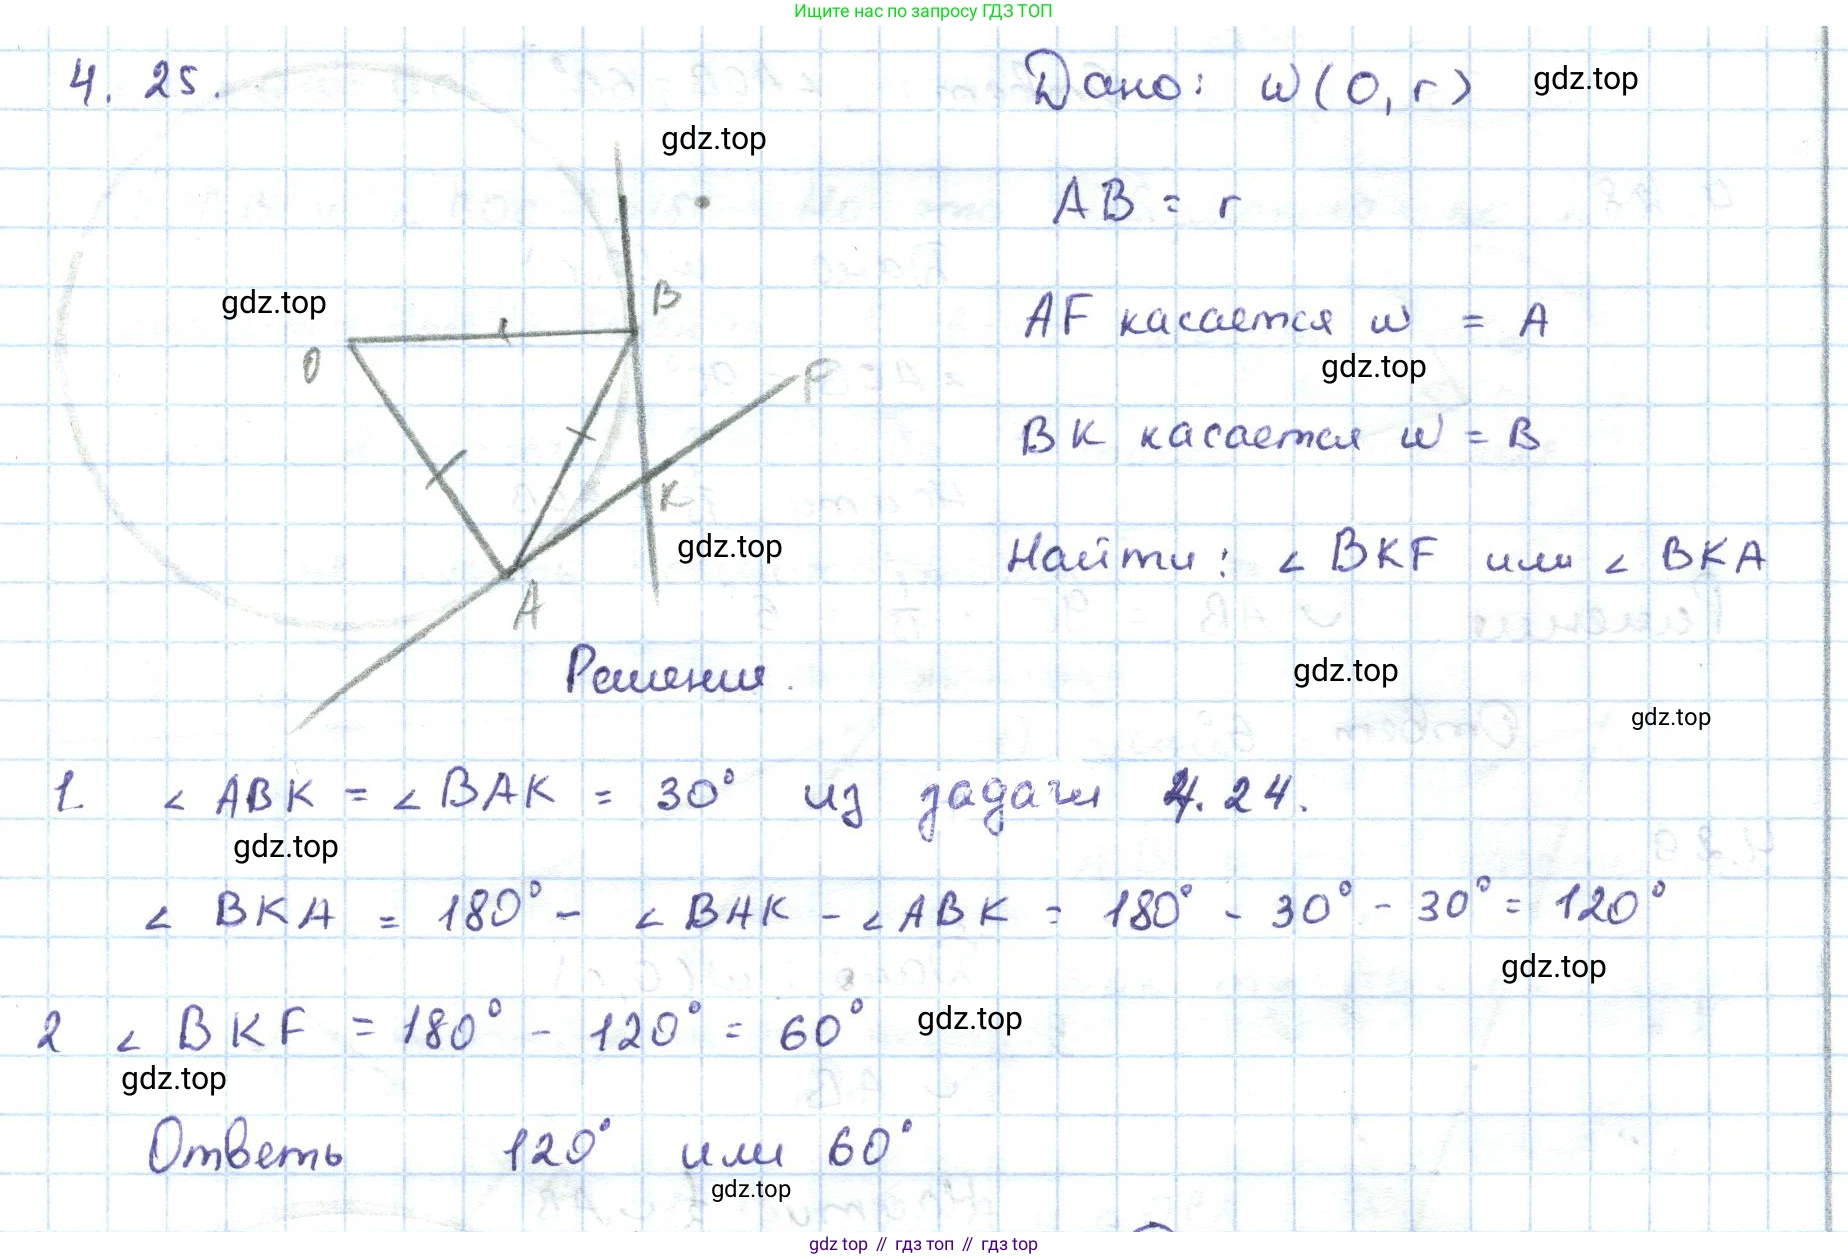 Ищите нас по запросу ГДЗ ТОП
4. 25.
Дано: w(O, r) gdz.top
gdz.top
AB = r
B
gdz.top
O
AF касается w = A
gdz.top
F
BK касается w = B
K
gdz.top
Найти: ∠ BKF или ∠ BKA
A
Решение.
gdz.top
gdz.top
1. ∠ ABK = ∠ BAK = 30° из задачи 4. 24.
gdz.top
∠ BKA = 180° - ∠ BAK - ∠ ABK = 180° - 30° - 30° = 120°
gdz.top
2 ∠ BKF = 180° - 120° = 60° gdz.top
gdz.top
Ответь 120° или 60°
gdz.top
gdz top // гдз топ // гдз top